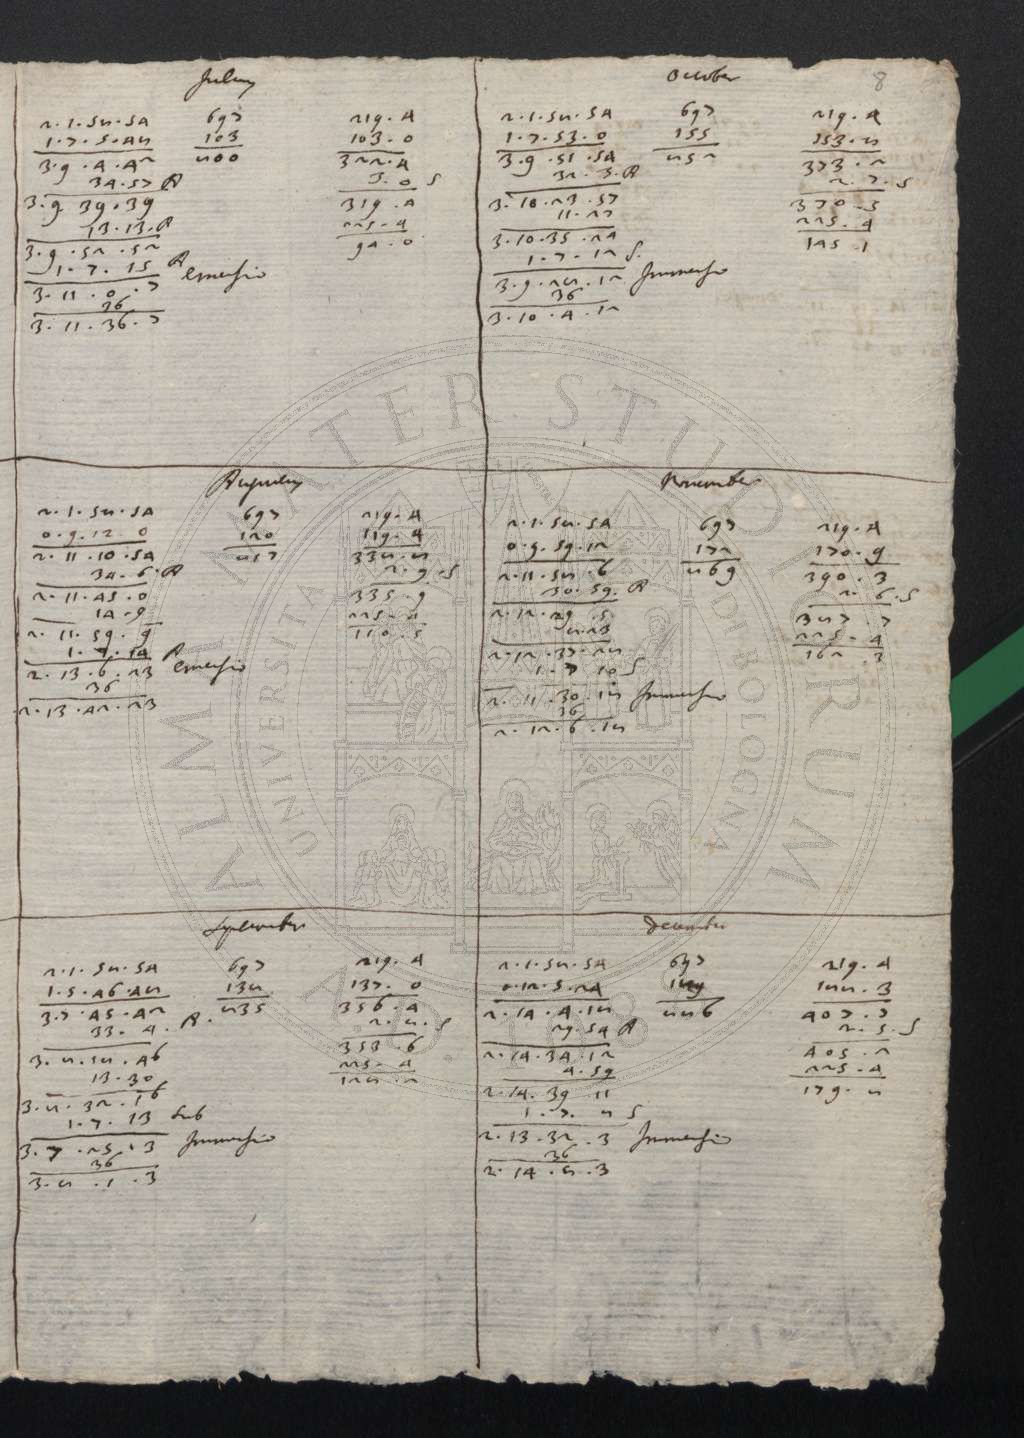 8
Julius
2 . 1 . 58 . 54
1 . 7 . 5 . 48
3 . 9 . 4 . 42
34 . 57 A
3 . 9 . 39 . 39
13 . 13 . A
3 . 9 . 52 . 52
1 . 7 . 15 A
3 . 11 . 0 . 7 emersio
36
3 . 11 . 36 . 7
697
103
800
219 . 4
103 . 0
322 . 4
3 . 0 S
319 . 4
225 . 4
94 . 0
October
2 . 1 . 58 . 54
1 . 7 . 53 . 0
3 . 9 . 51 . 54
32 . 3 . A
3 . 10 . 23 . 57
11 . 27
3 . 10 . 35 . 24
1 . 7 . 12 S
3 . 9 . 28 . 12 Immersio
36
3 . 10 . 4 . 12
697
155
852
219 . 4
153 . 8
373 . 2
2 . 7 . S
370 . 5
225 . 4
145 . 1
Augustus
2 . 1 . 58 . 54
0 . 9 . 12 . 0
2 . 11 . 10 . 54
34 . 6 . A
2 . 11 . 45 . 0
14 . 9
2 . 11 . 59 . 9
1 . 7 . 14 A
2 . 13 . 6 . 23 emersio
36
2 . 13 . 42 . 23
697
120
817
219 . 4
119 . 4
338 . 8
2 . 9 . S
335 . 9
225 . 4
110 . 5
November
2 . 1 . 58 . 54
0 . 9 . 59 . 12
2 . 11 . 58 . 6
30 . 59 . A
2 . 12 . 29 . 5
8 . 23
2 . 12 . 37 . 28
1 . 7 . 10 S
2 . 11 . 30 . 18 Immersio
36
2 . 12 . 6 . 18
697
172
869
219 . 4
170 . 9
390 . 3
2 . 6 . S
387 . 7
225 . 4
162 . 3
September
2 . 1 . 58 . 54
1 . 5 . 46 . 48
3 . 7 . 45 . 42
33 . 4 . A
3 . 8 . 18 . 46
13 . 30
3 . 8 . 32 . 16
1 . 7 . 13 sub
3 . 7 . 25 . 3 Immersio
36
3 . 8 . 1 . 3
697
138
835
219 . 4
137 . 0
356 . 4
2 . 8 . S
353 . 6
225 . 4
128 . 2
December
2 . 1 . 58 . 54
0 . 12 . 5 . 24
2 . 14 . 4 . 18
29 . 54 A
2 . 14 . 34 . 12
4 . 59
2 . 14 . 39 . 11
1 . 7 . 8 S
2 . 13 . 32 . 3 Immersio
36
2 . 14 . 8 . 3
697
189
886
219 . 4
188 . 3
407 . 7
2 . 5 . S
405 . 2
225 . 4
179 . 8
ALMA MATER STUDIORUM
UNIVERSITA DI BOLOGNA
A.D. 1088